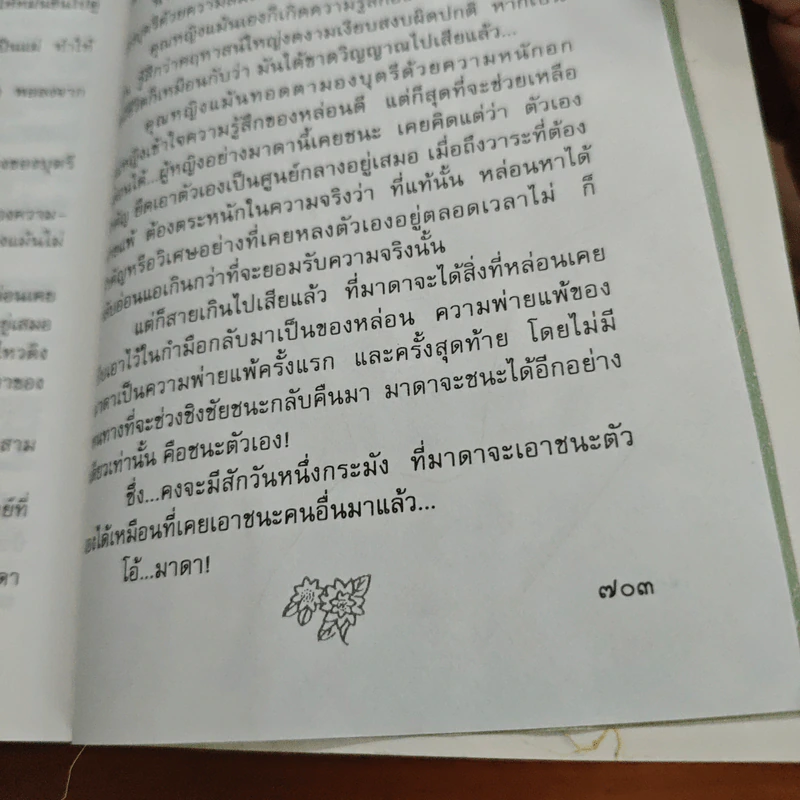 เป็นแม่ ทำให้
พอลงมาก
ของบุตรี
องความ-
งแม้นไม่
อนเคย
ยู่เสมอ
าของ
สาม
ย์ที่
ดา
คุณหญิงแม้นเองก็เกิดความรู้สึก
รู้สึกว่าคฤหาสน์ใหญ่งดงามเงียบสงบผิดปกติ หาก
ก็เหมือนกับว่า มันได้ขาดวิญญาณไปเสียแล้ว...
คุณหญิงแม้นทอดตามองบุตรีด้วยความหนักอก
หญิงเข้าใจความรู้สึกของหล่อนดี แต่ก็สุดที่จะช่วยเหลือ
ได้...ผู้หญิงอย่างมาดานี้เคยชนะ เคยคิดแต่ว่า ตัวเอง
ยึดเอาตัวเองเป็นศูนย์กลางอยู่เสมอ เมื่อถึงวาระที่ต้อง
แพ้ ต้องตระหนักในความจริงว่า ที่แท้นั้น หล่อนหาได้
คัญหรือวิเศษอย่างที่เคยหลงตัวเองอยู่ตลอดเวลาไม่ ก็
อ่อนแอเกินกว่าที่จะยอมรับความจริงนั้น
แต่ก็สายเกินไปเสียแล้ว ที่มาดาจะได้สิ่งที่หล่อนเคย
เอาไว้ในกำมือกลับมาเป็นของหล่อน ความพ่ายแพ้ของ
าดาเป็นความพ่ายแพ้ครั้งแรก และครั้งสุดท้าย โดยไม่มี
หนทางที่จะช่วงชิงชัยชนะกลับคืนมา มาดาจะชนะได้อีกอย่าง
เดียวเท่านั้น คือชนะตัวเอง!
ซึ่ง...คงจะมีสักวันหนึ่งกระมัง ที่มาดาจะเอาชนะตัว
เองได้เหมือนที่เคยเอาชนะคนอื่นมาแล้ว...
โอ้...มาดา!
๗๐๓